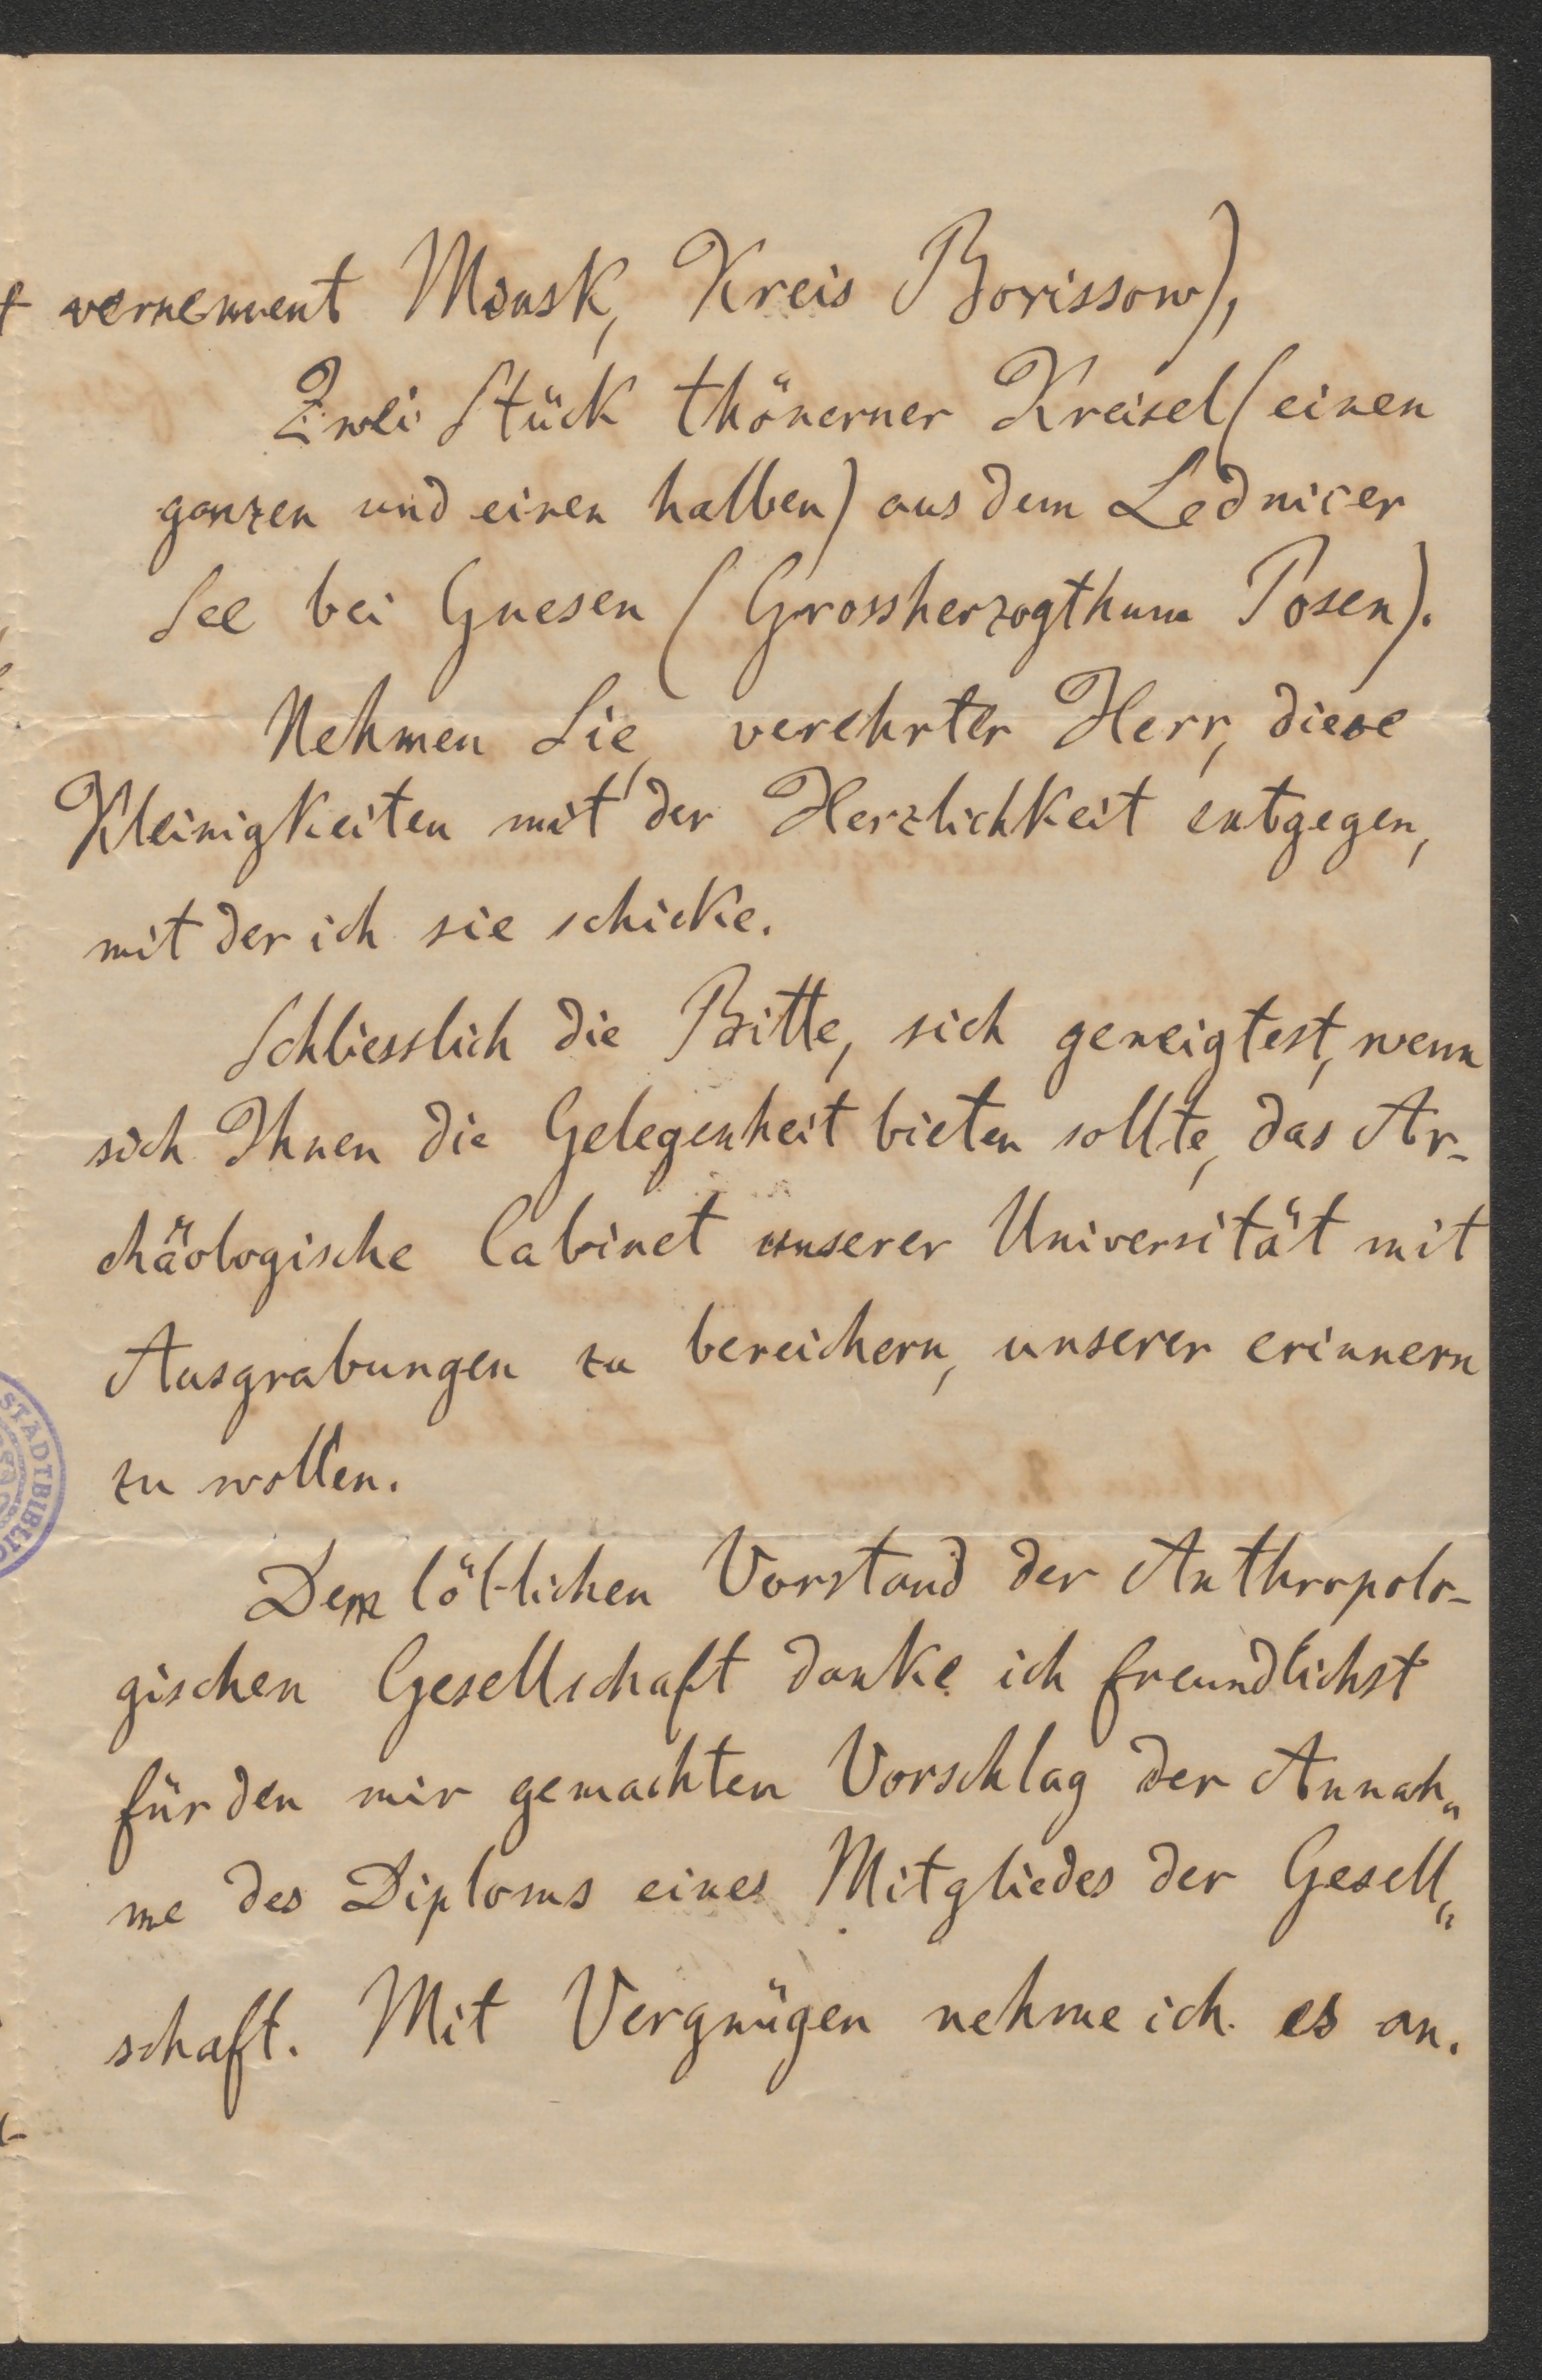 vernement Minsk, Kreis Borissow),
Zwei Stück thönerner Kreisel (einen
ganzen und einen halben) aus dem Lednicer
See bei Gnesen (Grossherzogthum Posen).
Nehmen Sie, verehrter Herr, diese
Kleinigkeiten mit der Herzlichkeit entgegen,
mit der ich sie schicke.
Schliesslich die Bitte, sich geneigtest, wenn
sich Ihnen die Gelegenheit bieten sollte, das Ar-
chäologische Cabinet unserer Universität mit
Ausgrabungen zu bereichern, unserer erinnern
zu wollen.
STADTBIBLIO
Dem löblichen Vorstand der Anthropolo-
gischen Gesellschaft danke ich freundlichst
für den mir gemachten Vorschlag der Annah„
me des Diploms eines Mitgliedes der Gesell„
schaft. Mit Vergnügen nehme ich es an.